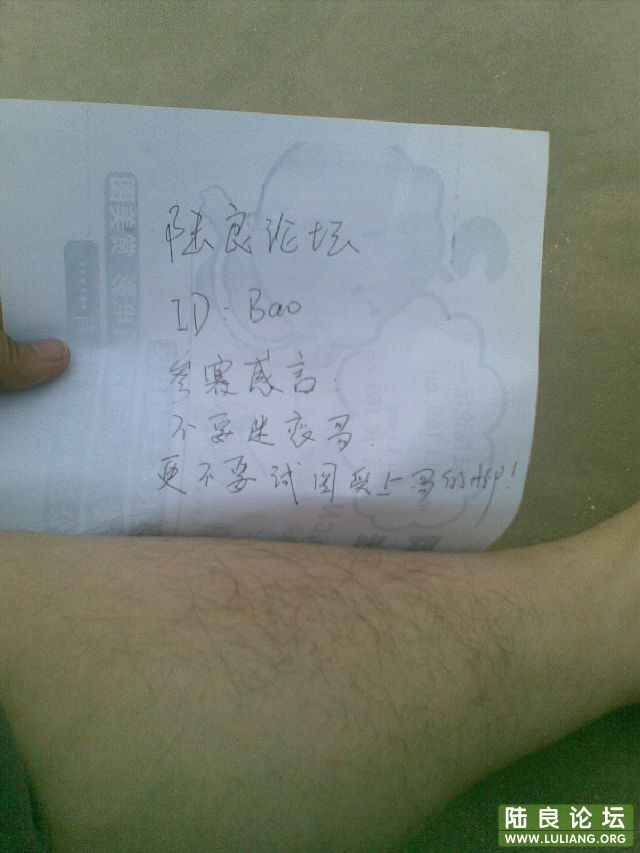 陆良论坛
ID：Bao
参赛感言：
不要迷恋哥．
更不要试图爱上哥的脚！
陆良论坛
WWW.LULIANG.ORG